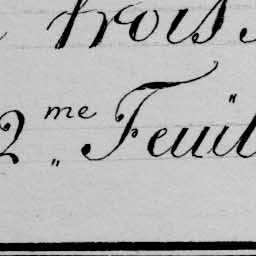 trois
2me Feuil